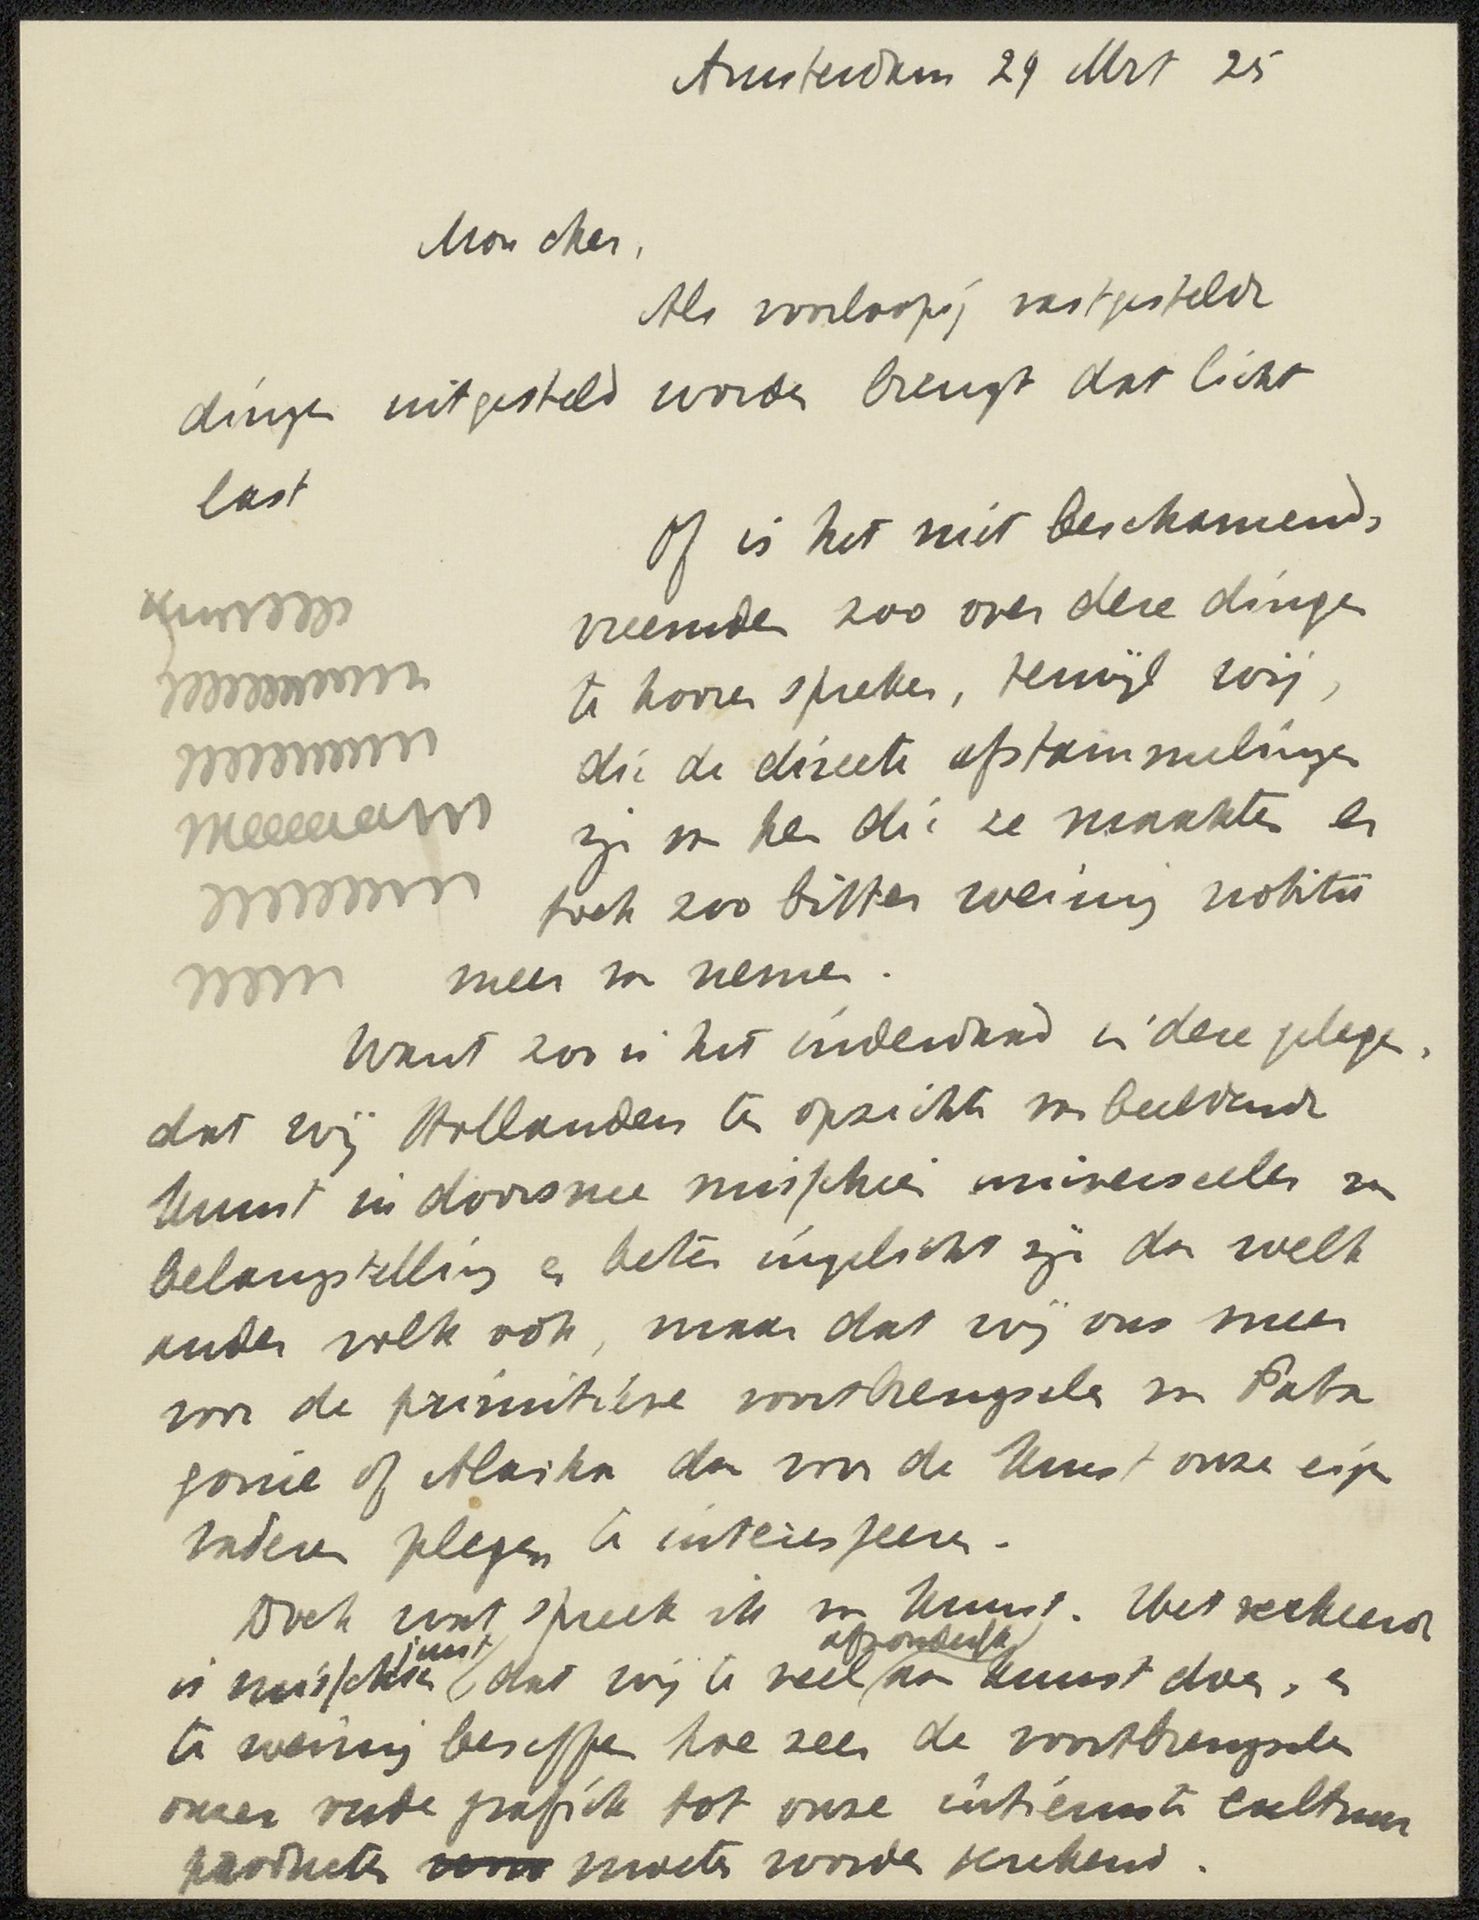 Amsterdam 29 Mrt 25
Mon cher,
Als voorloopig vastgestelde
dingen uitgesteld worden brengt dat licht
last
Of is het niet beschamend,
vreemden zoo over deze dingen
te hooren spreken, terwijl wij,
die de directe afstammelingen
zijn van hen die ze maakten er
toch zoo bitter weinig notitie
meer van nemen.
Want zoo is het inderdaad in deze gelegen,
dat wij Hollanders ten opzichte van beeldende
Kunst in doorsnee misschien universeeler van
belangstelling en beter ingelicht zijn dan welk
ander volk ook, maar dat wij ons meer
voor de primitieve voortbrengselen van Pata
gonie of Alaska dan voor de Kunst onzer eigen
vaderen plegen te interesseeren.
Doch wat spreek ik van Kunst. Het verkeerde
is misschien juist dat wij te veel afzonderlijk aan Kunst doen, en
te weinig beseffen hoe zeer de voortbrengselen
onzer oude grafiek tot onze intiemste cultuur
producten moeten worden gerekend.